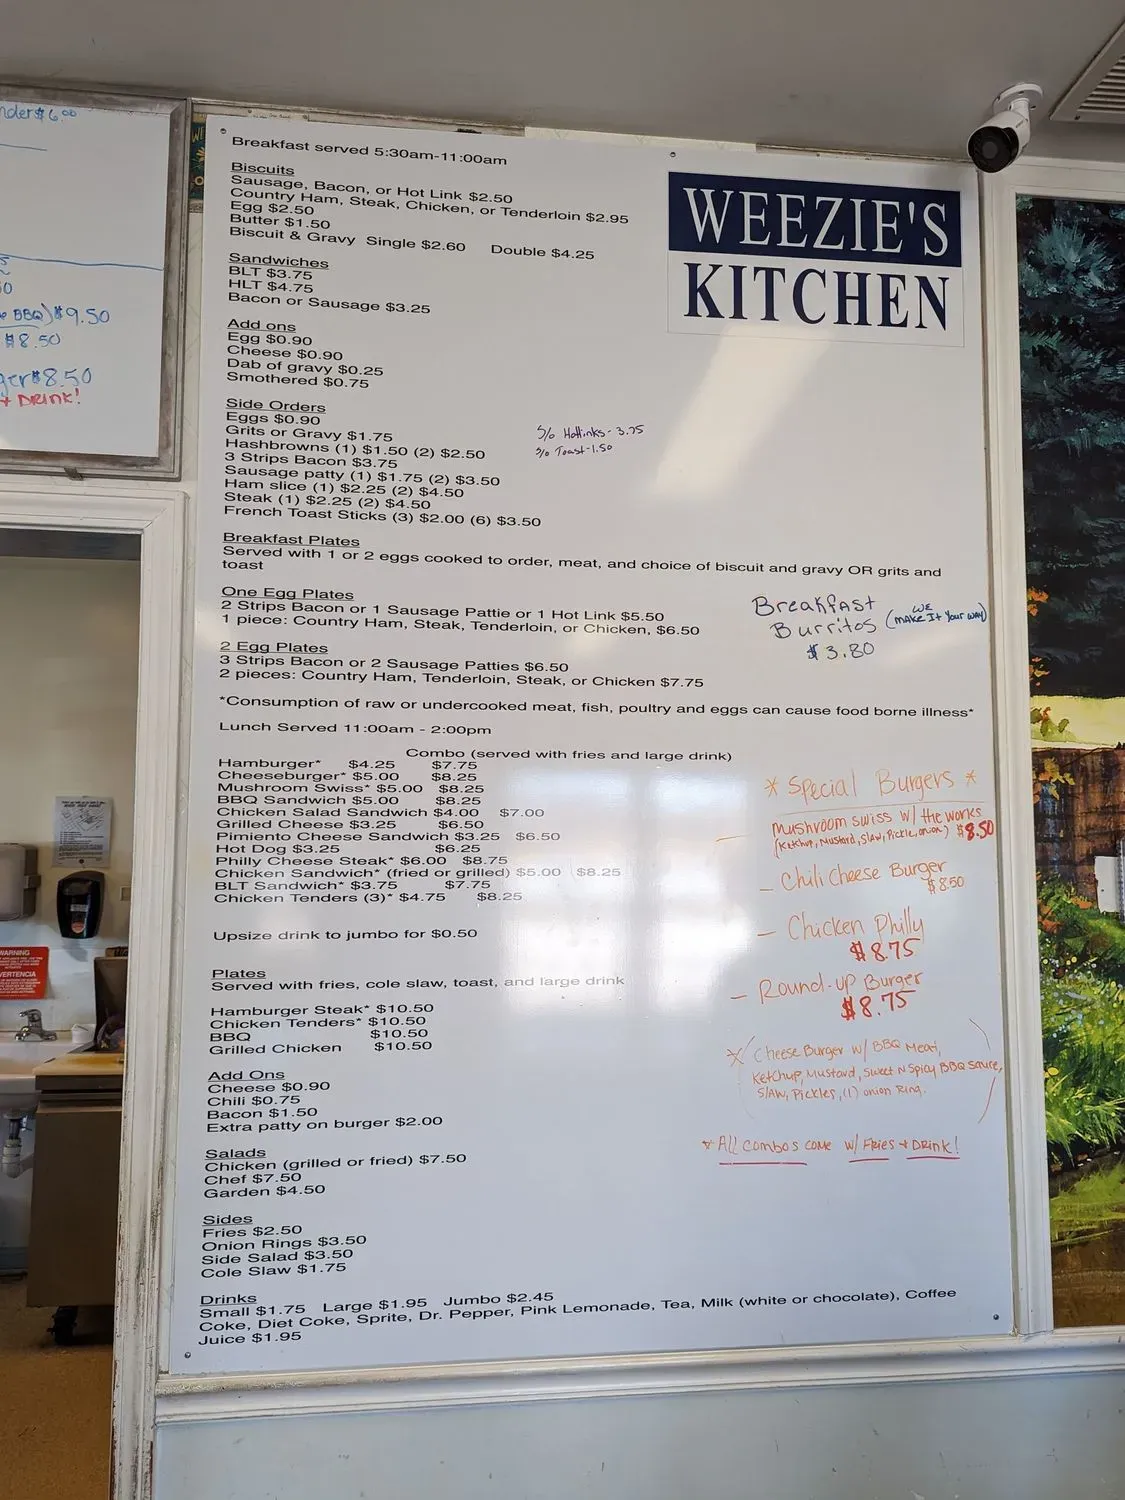 nder $6.00
BBQ) $9.50
$8.50
ger $8.50
+ DRINK!
WEEZIE'S
KITCHEN
Breakfast served 5:30am-11:00am
Biscuits
Sausage, Bacon, or Hot Link $2.50
Country Ham, Steak, Chicken, or Tenderloin $2.95
Egg $2.50
Butter $1.50
Biscuit & Gravy Single $2.60 Double $4.25
Sandwiches
BLT $3.75
HLT $4.75
Bacon or Sausage $3.25
Add ons
Egg $0.90
Cheese $0.90
Dab of gravy $0.25
Smothered $0.75
Side Orders
Eggs $0.90
Grits or Gravy $1.75
Hashbrowns (1) $1.50 (2) $2.50
3 Strips Bacon $3.75
Sausage patty (1) $1.75 (2) $3.50
Ham slice (1) $2.25 (2) $4.50
Steak (1) $2.25 (2) $4.50
French Toast Sticks (3) $2.00 (6) $3.50
S/o Hotlinks - 3.75
S/o Toast - 1.50
Breakfast Plates
Served with 1 or 2 eggs cooked to order, meat, and choice of biscuit and gravy OR grits and
toast
One Egg Plates
2 Strips Bacon or 1 Sausage Pattie or 1 Hot Link $5.50
1 piece: Country Ham, Steak, Tenderloin, or Chicken, $6.50
2 Egg Plates
3 Strips Bacon or 2 Sausage Patties $6.50
2 pieces: Country Ham, Tenderloin, Steak, or Chicken $7.75
Breakfast
Burritos (WE MAKE It Your WAY)
$3.80
*Consumption of raw or undercooked meat, fish, poultry and eggs can cause food borne illness*
Lunch Served 11:00am - 2:00pm
Combo (served with fries and large drink)
Hamburger* $4.25 $7.75
Cheeseburger* $5.00 $8.25
Mushroom Swiss* $5.00 $8.25
BBQ Sandwich $5.00 $8.25
Chicken Salad Sandwich $4.00 $7.00
Grilled Cheese $3.25 $6.50
Pimiento Cheese Sandwich $3.25 $6.50
Hot Dog $3.25 $6.25
Philly Cheese Steak* $6.00 $8.75
Chicken Sandwich* (fried or grilled) $5.00 $8.25
BLT Sandwich* $3.75 $7.75
Chicken Tenders (3)* $4.75 $8.25
Upsize drink to jumbo for $0.50
Plates
Served with fries, cole slaw, toast, and large drink
Hamburger Steak* $10.50
Chicken Tenders* $10.50
BBQ $10.50
Grilled Chicken $10.50
Add Ons
Cheese $0.90
Chili $0.75
Bacon $1.50
Extra patty on burger $2.00
Salads
Chicken (grilled or fried) $7.50
Chef $7.50
Garden $4.50
Sides
Fries $2.50
Onion Rings $3.50
Side Salad $3.50
Cole Slaw $1.75
Drinks
Small $1.75 Large $1.95 Jumbo $2.45
Coke, Diet Coke, Sprite, Dr. Pepper, Pink Lemonade, Tea, Milk (white or chocolate), Coffee
Juice $1.95
* Special Burgers *
Mushroom Swiss w/ the works
(Ketchup, Mustard, Slaw, Pickle, onion) $8.50
- Chili Cheese Burger
$8.50
- Chicken Philly
$8.75
- Round-up Burger
$8.75
* (Cheese Burger w/ BBQ Meat,
Ketchup, Mustard, Sweet N Spicy BBQ Sauce,
Slaw, Pickles, (1) onion Ring.)
* All Combos come w/ Fries + Drink!
WARNING